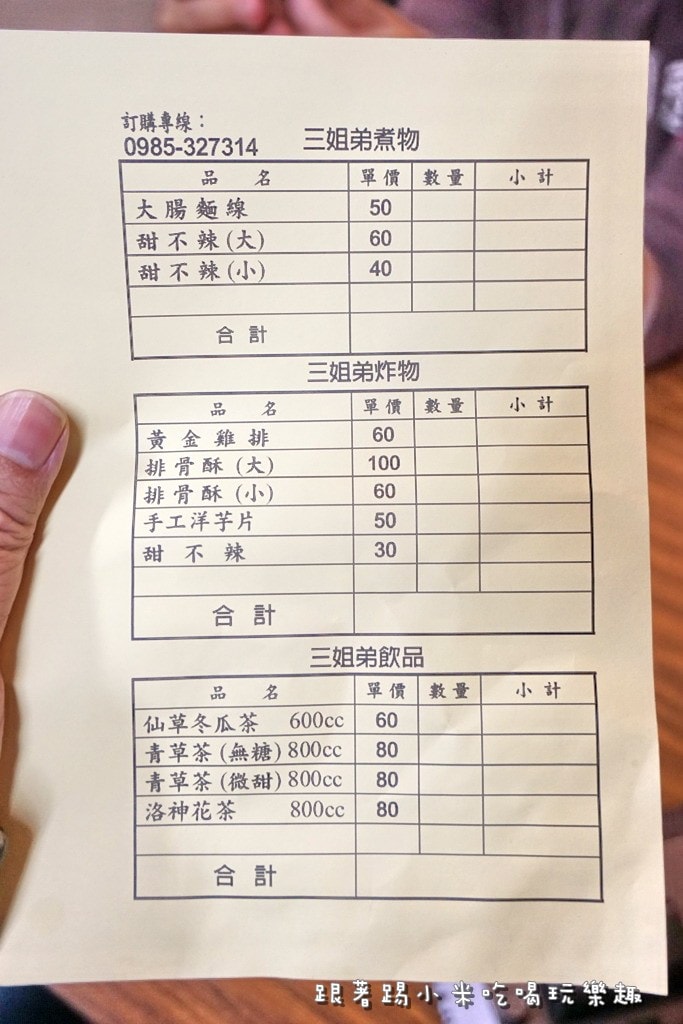 訂購專線：
0985-327314 三姐弟煮物
品 名 單價 數量 小計
大腸麵線 50
甜不辣(大) 60
甜不辣(小) 40
合計
三姐弟炸物
品 名 單價 數量 小計
黃金雞排 60
排骨酥 (大) 100
排骨酥 (小) 60
手工洋芋片 50
甜不辣 30
合計
三姐弟飲品
品 名 單價 數量 小計
仙草冬瓜茶 600cc 60
青草茶(無糖)800cc 80
青草茶(微甜)800cc 80
洛神花茶 800cc 80
合計
跟著踢小米吃喝玩樂趣